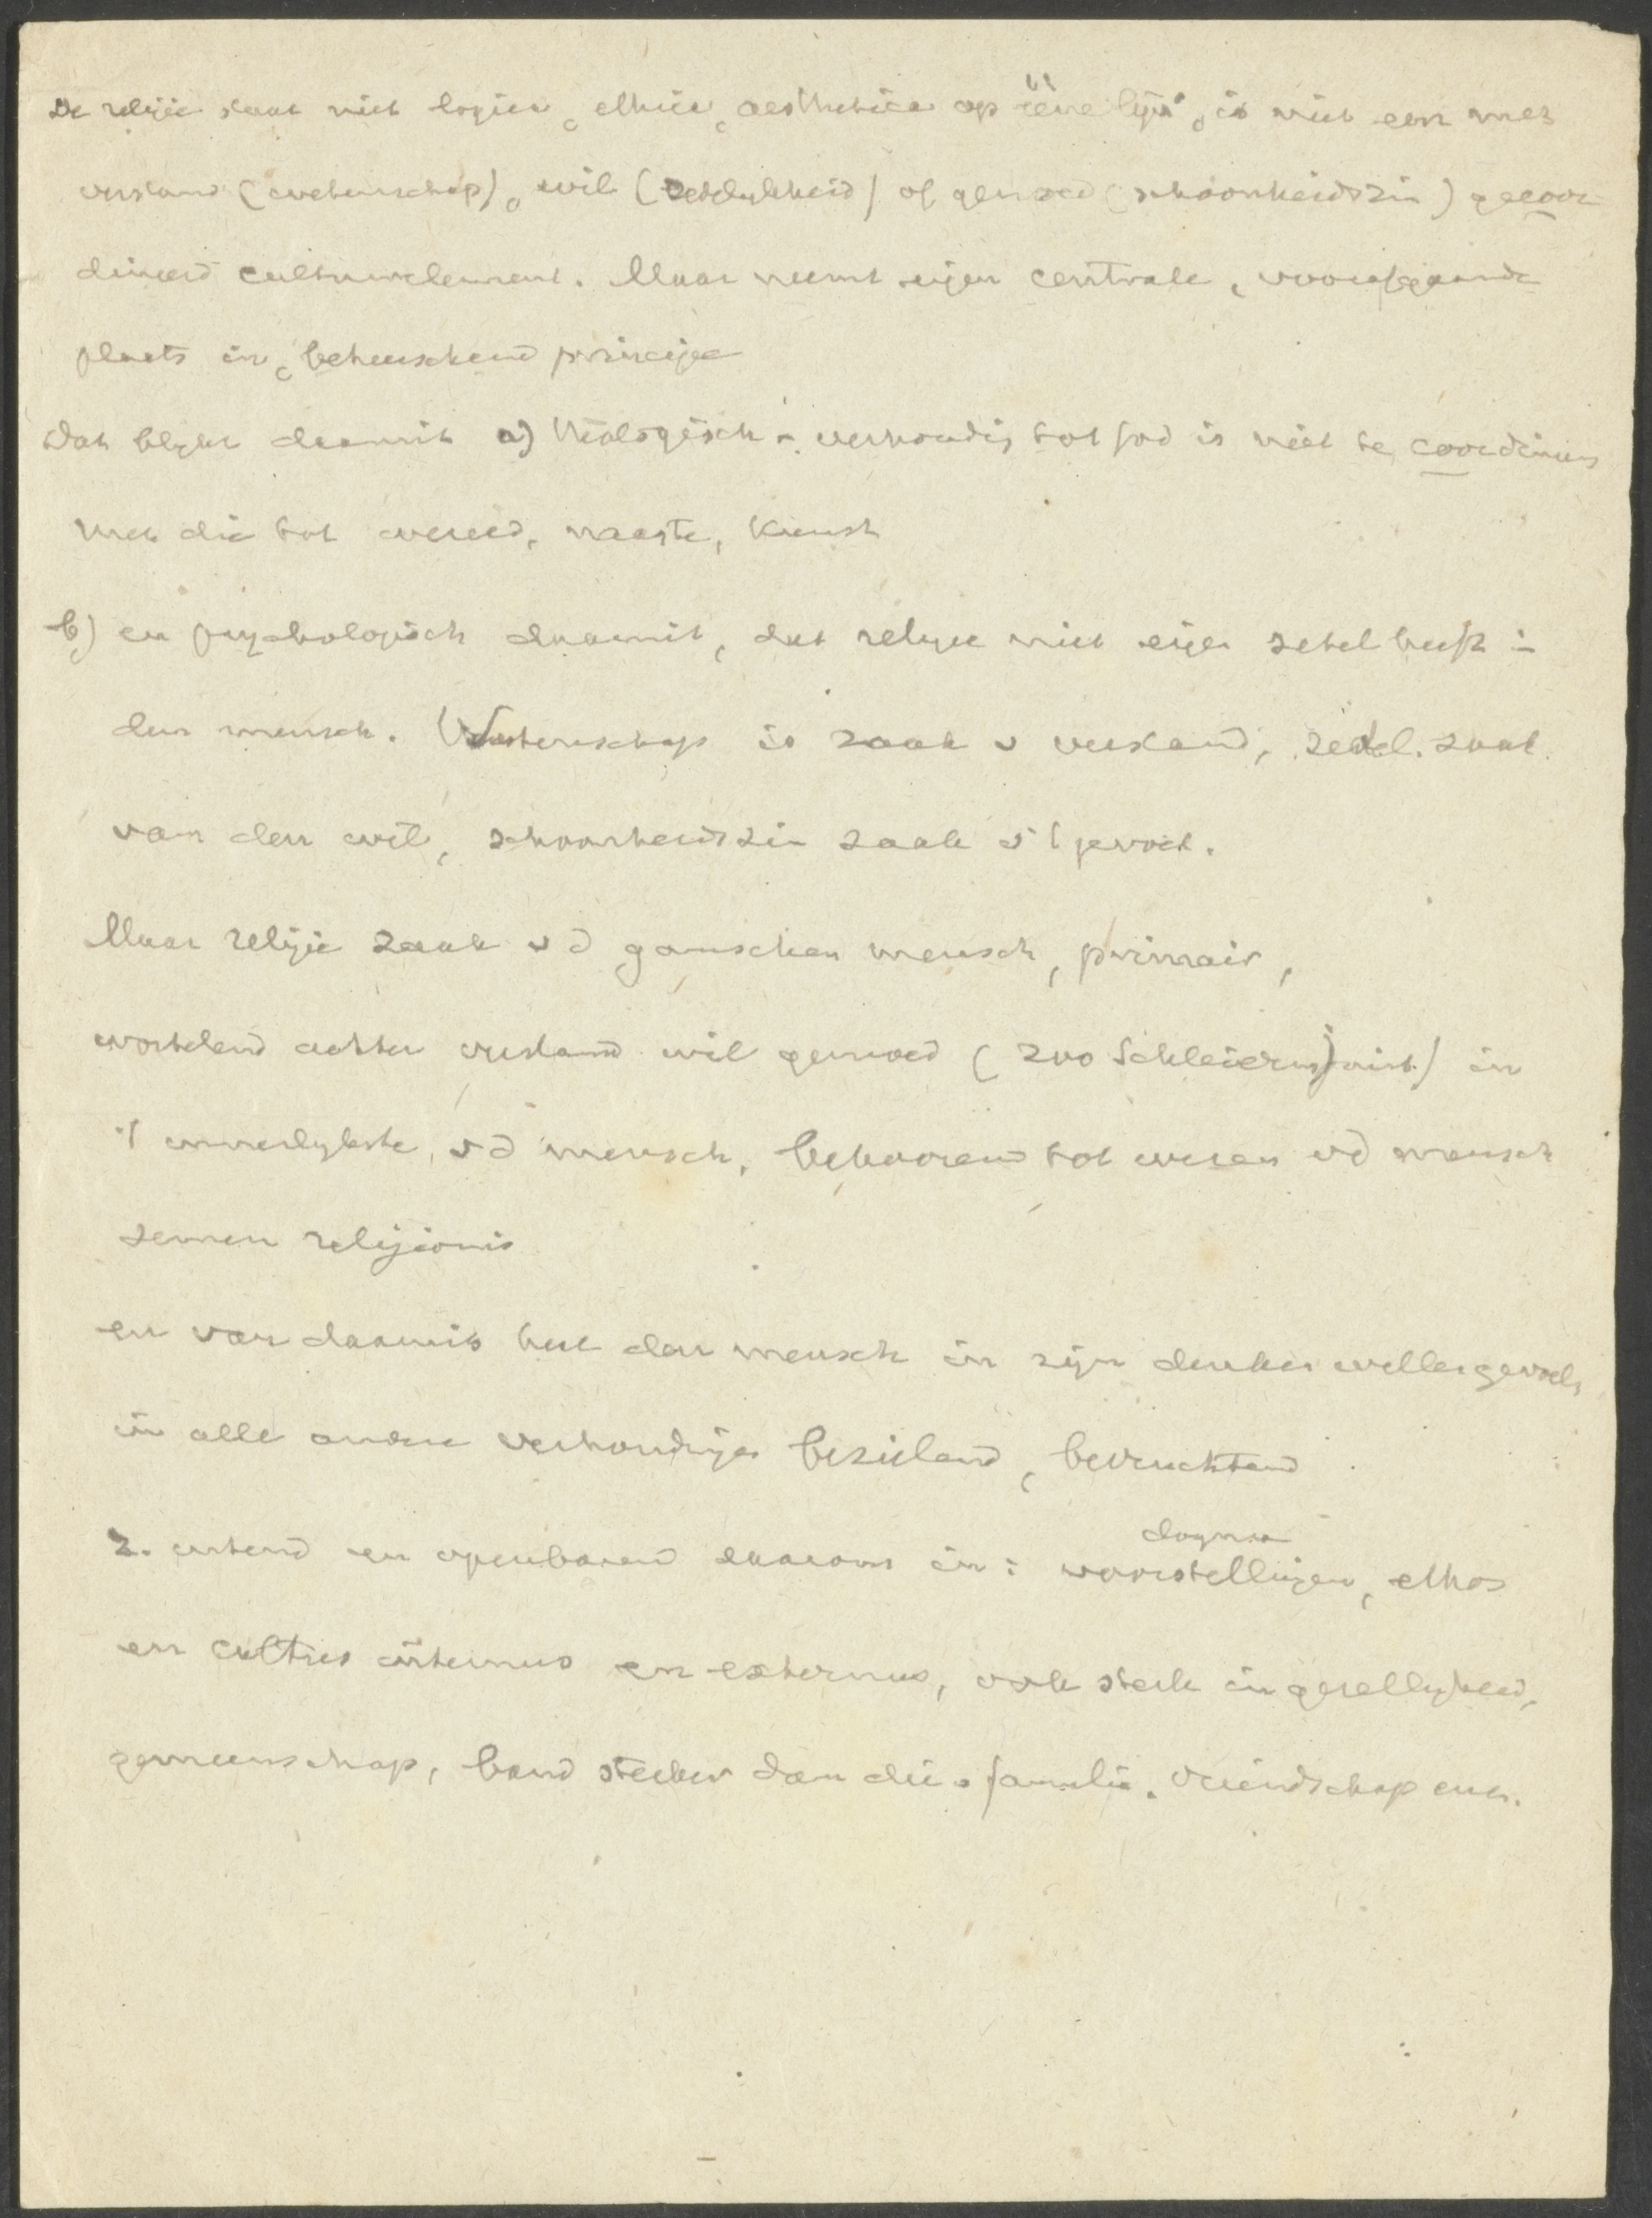 De religie staat niet logica, ethica, aesthetica op ééne lijn, is niet een met
verstand (wetenschap), wil (zedelykheid) of gemoed (schoonheidszin) gecoor-
dineerd cultuurelement. Maar neemt eigen centrale, voorafgaande
plaats in, beheerschend principe
dat blykt daaruit a) theologisch: verhoudig tot God is niet te coordineeren
met die tot wereld, naaste, kunst
b) en psychologisch daaruit, dat religie niet eigen zetel heeft in
den mensch. Wetenschap is zaak v verstand, zedel. zaak
van den wil, schoonheidszin zaak v 't gevoel.
Maar religie zaak vd ganschen mensch, primair,
wortelend achter verstand wil gemoed (zoo Schleierm) in
't innerlykste vd mensch, behoorend tot wezen vd mensch
semen religionis
en van daaruit heel den mensch in zijn denken willen gevoelen
in alle andere verhoudingen bezielend, bevruchtend
2. uitend en openbarend daarom in: voorstellingen, ethos
dogma
en cultus internus en externus, ook sterk in gezellykheid,
gemeenschap, band sterker dan die v familie. vriendschap enz.